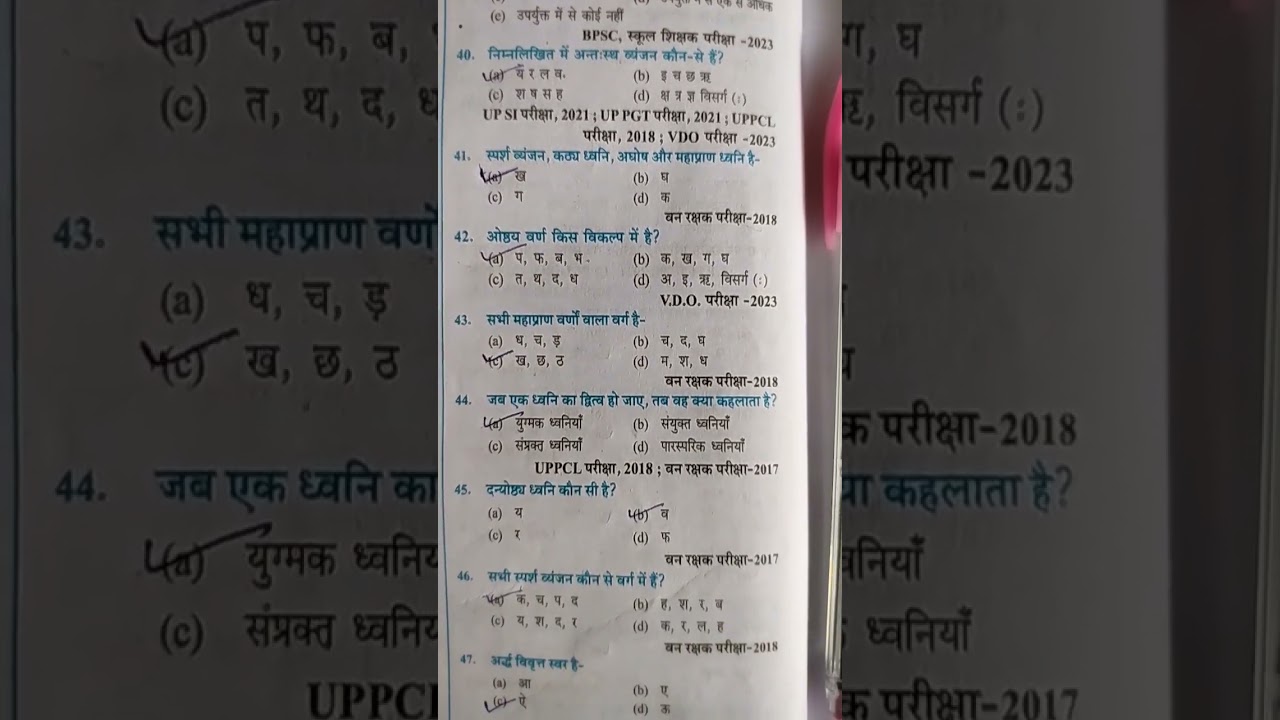 (c) उपर्युक्त में से कोई नहीं
BPSC, स्कूल शिक्षक परीक्षा -2023
40. निम्नलिखित में अन्तःस्थ व्यंजन कौन-से हैं?
(a) य र ल व (b) इ च छ ऋ
(c) श ष स ह (d) क्ष त्र ज्ञ विसर्ग (ः)
UP SI परीक्षा, 2021 ; UP PGT परीक्षा, 2021 ; UPPCL
परीक्षा, 2018 ; VDO परीक्षा -2023
41. स्पर्श व्यंजन, कठ्य ध्वनि, अघोष और महाप्राण ध्वनि है-
(a) ख (b) घ
(c) ग (d) क
वन रक्षक परीक्षा-2018
42. ओष्ठ्य वर्ण किस विकल्प में है?
(a) प, फ, ब, भ (b) क, ख, ग, घ
(c) त, थ, द, ध (d) अ, इ, ऋ, विसर्ग (ः)
V.D.O. परीक्षा -2023
43. सभी महाप्राण वर्णों वाला वर्ग है-
(a) ध, च, ड़ (b) च, द, घ
(c) ख, छ, ठ (d) म, श, ध
वन रक्षक परीक्षा-2018
44. जब एक ध्वनि का द्वित्व हो जाए, तब वह क्या कहलाता है?
(a) युग्मक ध्वनियाँ (b) संयुक्त ध्वनियाँ
(c) संप्रक्त ध्वनियाँ (d) पारस्परिक ध्वनियाँ
UPPCL परीक्षा, 2018 ; वन रक्षक परीक्षा-2017
45. दन्योष्ठ्य ध्वनि कौन सी है?
(a) य (b) व
(c) र (d) फ
वन रक्षक परीक्षा-2017
46. सभी स्पर्श व्यंजन कौन से वर्ग में हैं?
(a) क, च, प, द (b) ह, श, र, ब
(c) य, श, द, र (d) क, र, ल, ह
वन रक्षक परीक्षा-2018
47. अर्द्ध विवृत्त स्वर है-
(a) आ (b) ए
(c) ऐ (d) क